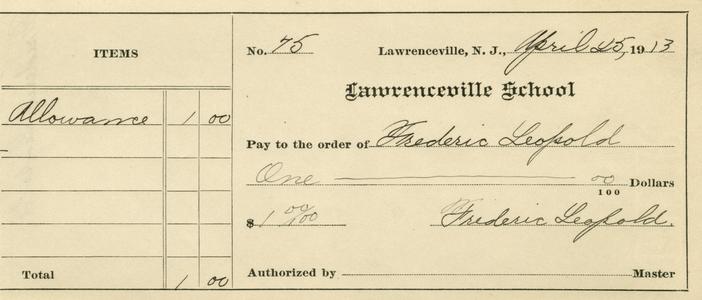 ITEMS
Allowance 1 00
Total 1 00
No. 75 Lawrenceville, N. J., April 25, 1913
Lawrenceville School
Pay to the order of Frederic Leopold
One 00/100 Dollars
$ 1 00/100 Frederic Leopold.
Authorized by Master